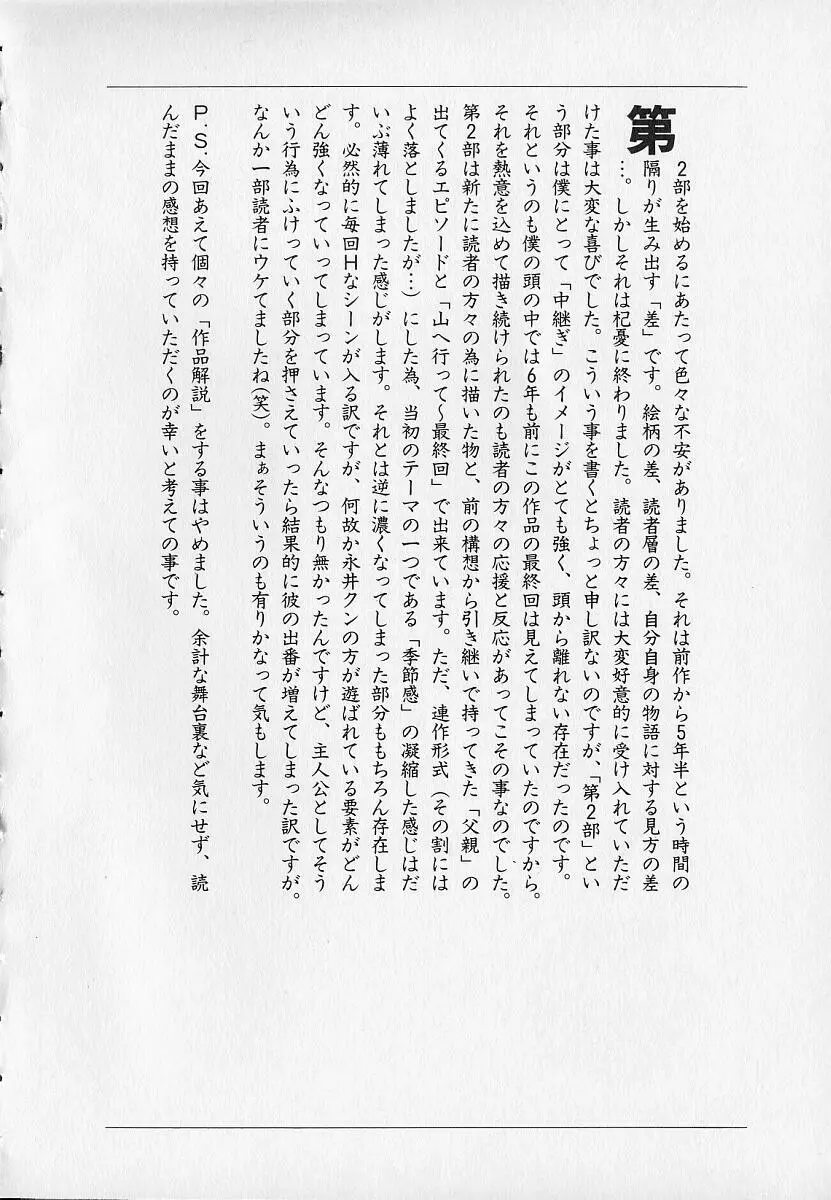 第2部を始めるにあたって色々な不安がありました。それは前作から5年半という時間の
隔りが生み出す「差」です。絵柄の差、読者層の差、自分自身の物語に対する見方の差
…。しかしそれは杞憂に終わりました。読者の方々には大変好意的に受け入れていただ
けた事は大変な喜びでした。こういう事を書くとちょっと申し訳ないのですが、「第2部」とい
う部分は僕にとって「中継ぎ」のイメージがとても強く、頭から離れない存在だったのです。
それというのも僕の頭の中では6年も前にこの作品の最終回は見えてしまっていたのですから。
それを熱意を込めて描き続けられたのも読者の方々の応援と反応があってこその事なのでした。
第2部は新たに読者の方々の為に描いた物と、前の構想から引き継いで持ってきた「父親」の
出てくるエピソードと「山へ行って〜最終回」で出来ています。ただ、連作形式（その割には
よく落としましたが…）にした為、当初のテーマの一つである「季節感」の凝縮した感じはだ
いぶ薄れてしまった感じがします。それとは逆に濃くなってしまった部分ももちろん存在しま
す。必然的に毎回Hなシーンが入る訳ですが、何故か永井クンの方が遊ばれている要素がどん
どん強くなっていってしまっています。そんなつもり無かったんですけど、主人公としてそう
いう行為にふけっていく部分を押さえていったら結果的に彼の出番が増えてしまった訳ですが。
なんか一部読者にウケてましたね(笑)。まぁそういうのも有りかなって気もします。
P.S.今回あえて個々の「作品解説」をする事はやめました。余計な舞台裏など気にせず、読
んだままの感想を持っていただくのが幸いと考えての事です。